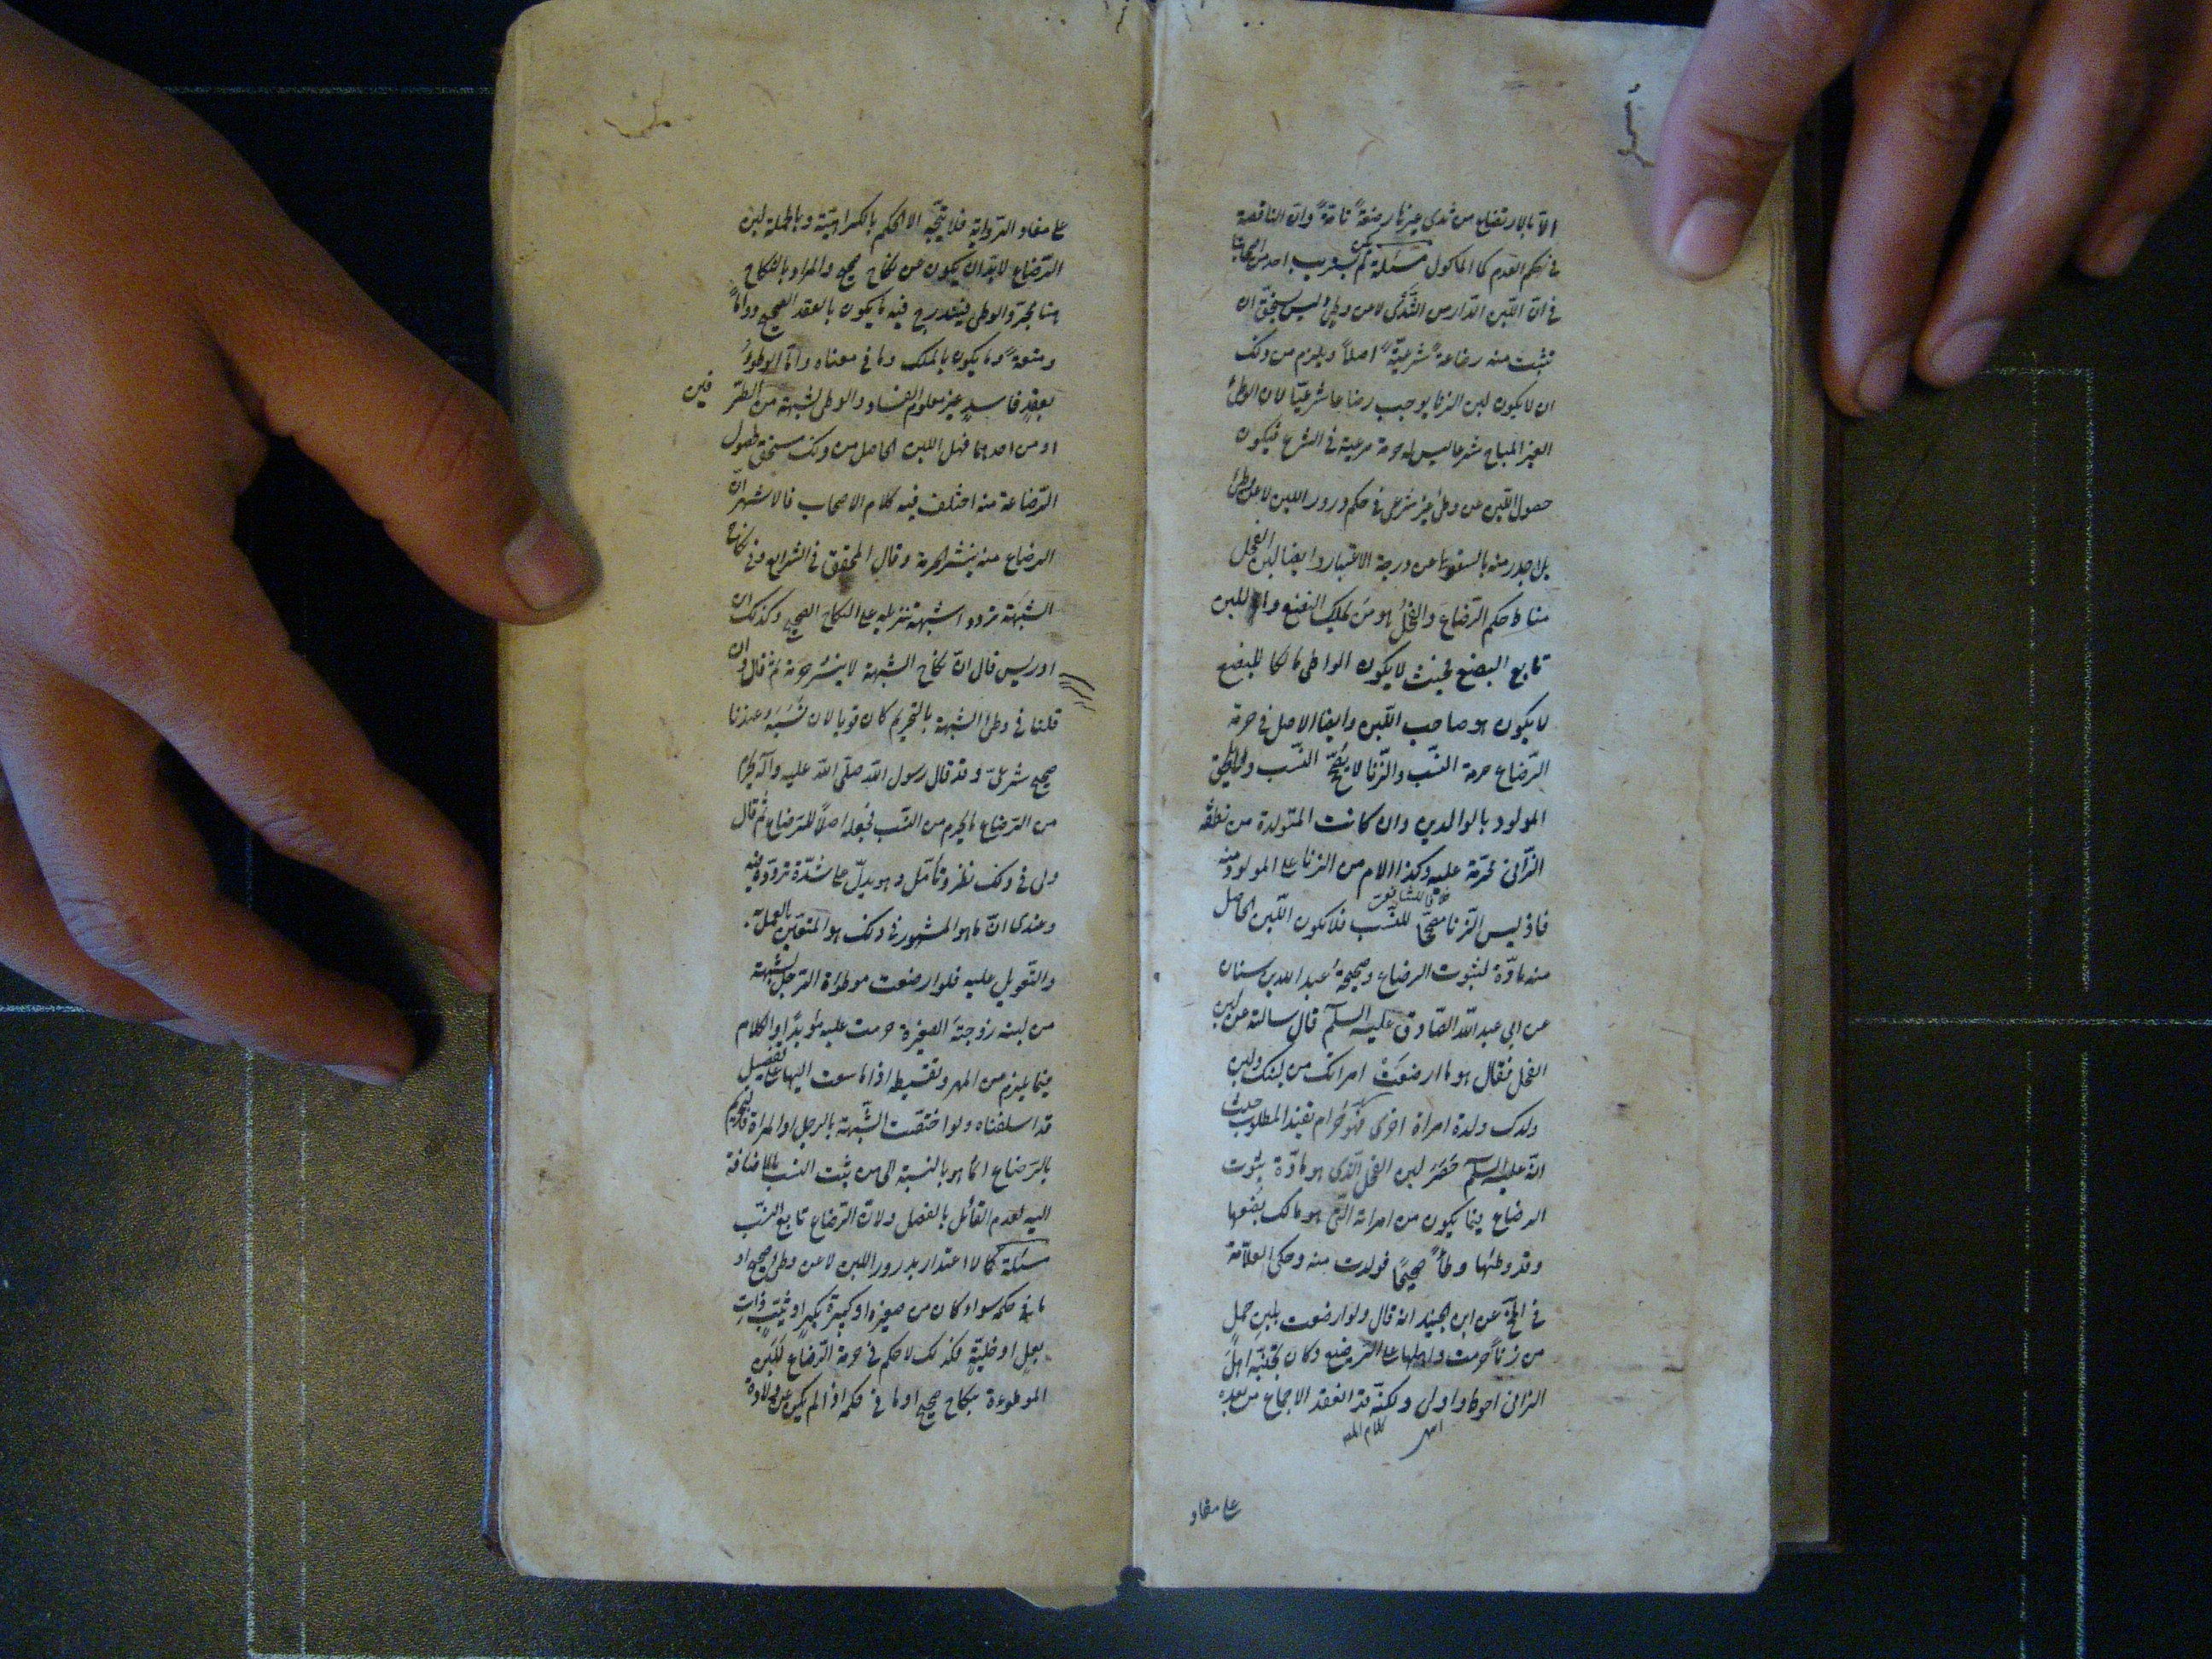 الا بالارتضاع من ثدى غيرها رضعة تامة وان الناقصة
فى حكم العدم كالماكول مسئلة لم يكن بريب احد من اصحابنا
فى ان اللبن الدار من الثدى لا عن وطئ ليس يستحق ان
تثبت منه رضاعة شرعية اصلا ويلزم من ذلك
ان لا يكون لبن الزنا يوجب رضاعا شرعيا لان الوطئ
الغير المباح شرعا ليس له حرمة مرعية فى الشرع فيكون
حصول اللبن عن وطئ غير شرعى فى حكم درور اللبن لا عن وطئ
بل اجدر منه بالسقوط عن درجة الاعتبار وايضا لبن الفحل
مناط حكم الرضاع والفحل هو من يملك البضع واللبن
تابع البضع فحيث لا يكون الواطى مالكا للبضع
لا يكون هو صاحب اللبن وايضا الاصل فى حرمة
الرضاع حرمة النسب والزنا لا يصحح النسب ولا يلحق
المولود بالوالدين وان كانت المتولدة من نطفة
الزانى محرمة عليه وكذا الام من الزنا على المولود منه
خلافا للشافعى
فاذ ليس الزنا مصححا للنسب فلا يكون اللبن الحاصل
منه مادة لثبوت الرضاع وصحيحة عبد الله بن سنان
عن ابى عبد الله الصادق عليه السلم قال سالته عن لبن
الفحل فقال هو ما ارضعت امراتك من لبنك ولبن
ولدك ولد امراة اخرى فهو حرام يفيد المطلوب حيث
انه عليه السلم حصر لبن الفحل الذى هو مادة ثبوت
الرضاع فيما يكون من امراته التى هو مالك بضعها
وقد وطئها وطأ صحيحا فولدت منه وحكى العلامة
فى عن ابن الجنيد انه قال ولو ارضعت بلبن حمل
من زنا حرمت واهلها على المرتضع وكان تجنبه اهل
الزانى احوط واولى ولكنه قد انعقد الاجماع من بعده
كلام
على مفاد
على مفاد الرواية فلا يتجه الا الحكم بالكراهية وبالجملة لبن
الرضاع لابد ان يكون عن نكاح صحيح والمراد بالنكاح
هنا مجرد الوطى فيندرج فيه ما يكون بالعقد الصحيح دواما
ومتعة وما يكون بالملك وما فى معناه واما الوطؤ
بعقد فاسد غير معلوم الفساد والوطى لشبهة من الطرفين
او من احدهما فهل اللبن الحاصل من ذلك يستحق حصول
الرضاعة منه اختلف فيه كلام الاصحاب فالاشهر ان
الرضاع منه ينشر الحرمة وقال المحقق فى الشرايع وفى نكاح
الشبهة تردد اشبهه تنزيله على النكاح الصحيح وكذلك ابن
ادريس قال ان نكاح الشبهة لا ينشر حرمة ثم قال وان
قلنا فى وطئ الشبهة بالتحريم كان قويا لان نسبه عندنا
صحيح شرعى وقد قال رسول الله صلى الله عليه وآله يحرم
من الرضاع ما يحرم من النسب فجعله اصلا للرضاع ثم قال
ولى فى ذلك نظر وتأمل وهو يدل على شدة تردده فيه
وعندى ان ما هو المشهور فى ذلك هو المتعين بالعمل به
والتعويل عليه فلو ارضعت موطوءة الرجل لشبهة
من لبنه زوجته الصغيرة حرمت عليه مؤبدا والكلام
فيما يلزم من المهر وتقسيطه اذا ما سعت اليها على تفصيل
قد اسلفناه ولو اختصت الشبهة بالرجل او المراة فالتحريم
بالرضاع انما هو بالنسبة الى من يثبت النسب بالاضافة
اليه لعدم القائل بالفصل ولان الرضاع تابع النسب
مسئلة كما لا اعتداد بدرور اللبن لا عن وطئ صحيح او
ما فى حكمه سواء كان من صغيرة او كبيرة بكر او ثيب ذات
بعل او خلية فكذلك لا حكم فى حرمة الرضاع للبن
الموطوءة بنكاح صحيح او ما فى حكمه اذا لم يكن عن ولادة